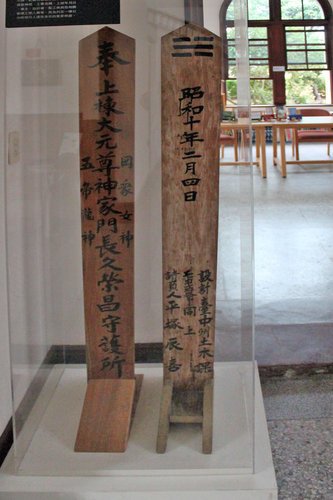 奉上棟大元尊神家門長久榮昌守護所
罔象女神
五帝龍神
昭和十年二月四日
設計臺中州土木課
工事監督同上
請負人平塚辰